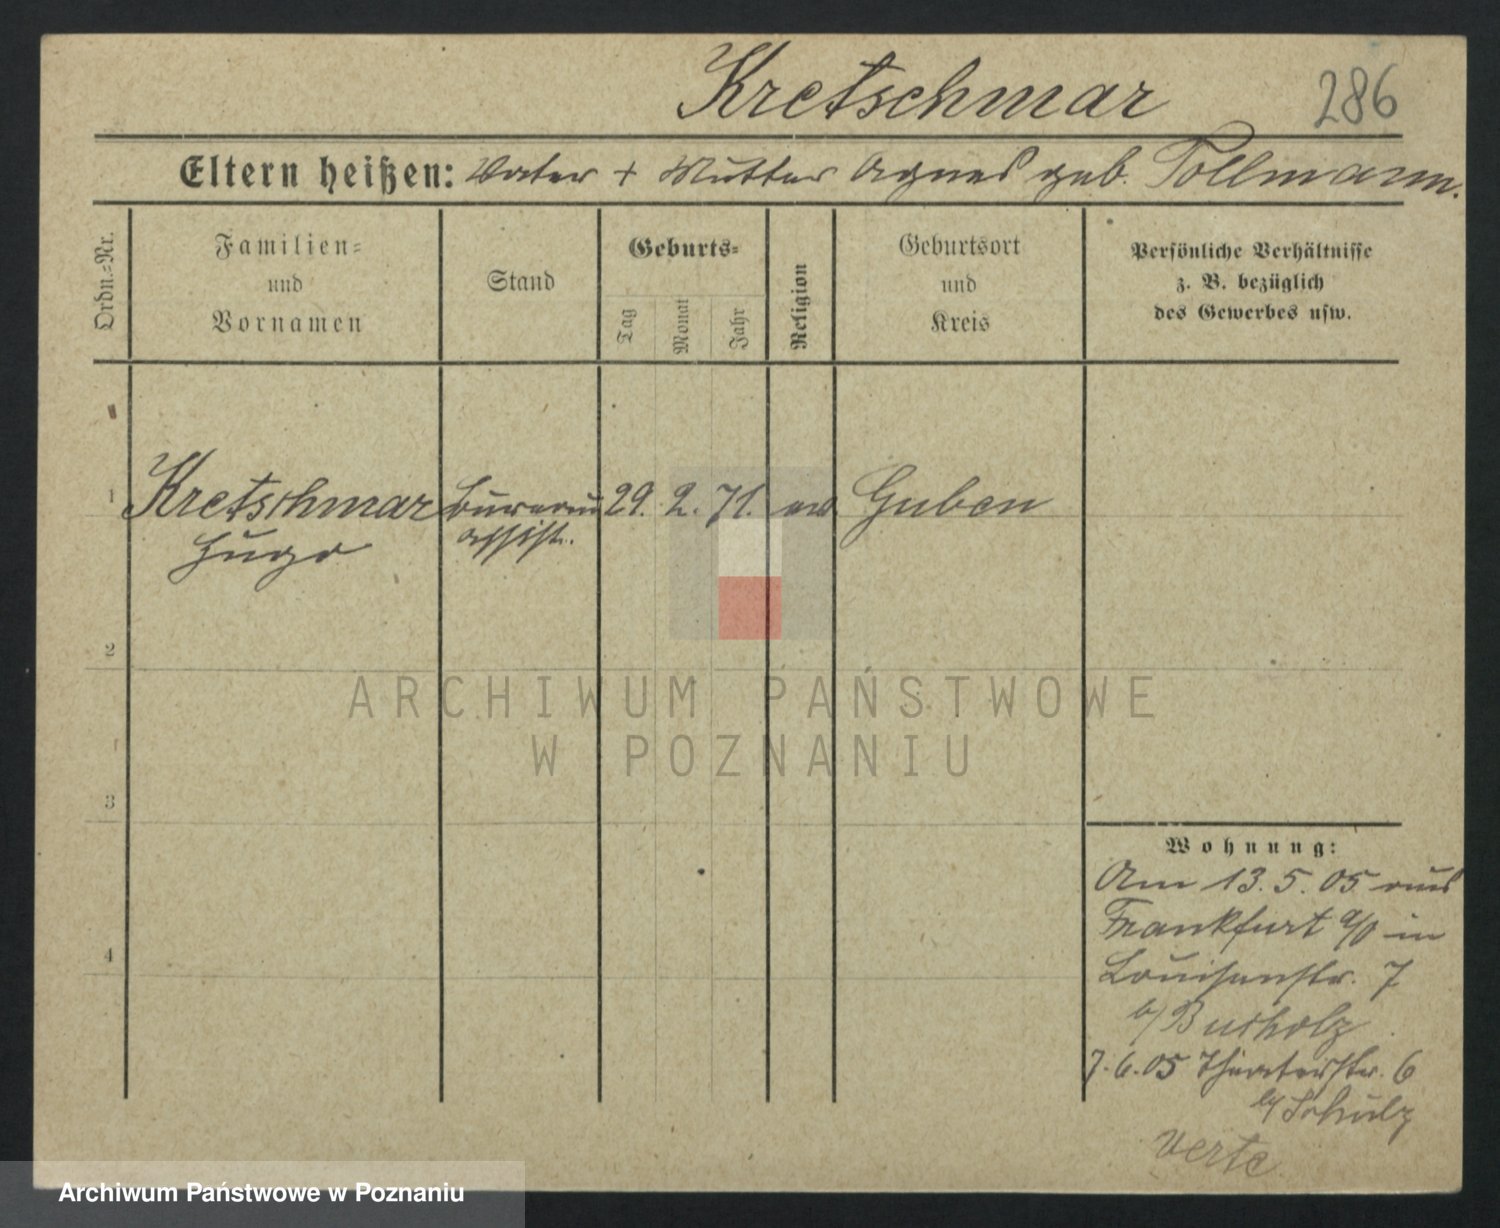 Kretschmar
286
Eltern heißen: Vater + Mutter Agnes geb. Tollmann.
Ordn.=Nr.
Familien=
und
Vornamen
Stand
Geburts=
Tag
Monat
Jahr
Religion
Geburtsort
und
Kreis
Persönliche Verhältnisse
z. B. bezüglich
des Gewerbes usw.
1 Kretschmar Bureau 29. 2. 71. ev Guben
Hugo assist.
2
3
4
Wohnung:
Am 13. 5. 05 aus
Frankfurt a/O in
Louisenstr. 7
b/ Buchholz
7. 6. 05 Theaterstr. 6
b/ Schulz
verte
ARCHIWUM PAŃSTWOWE
W POZNANIU
Archiwum Państwowe w Poznaniu